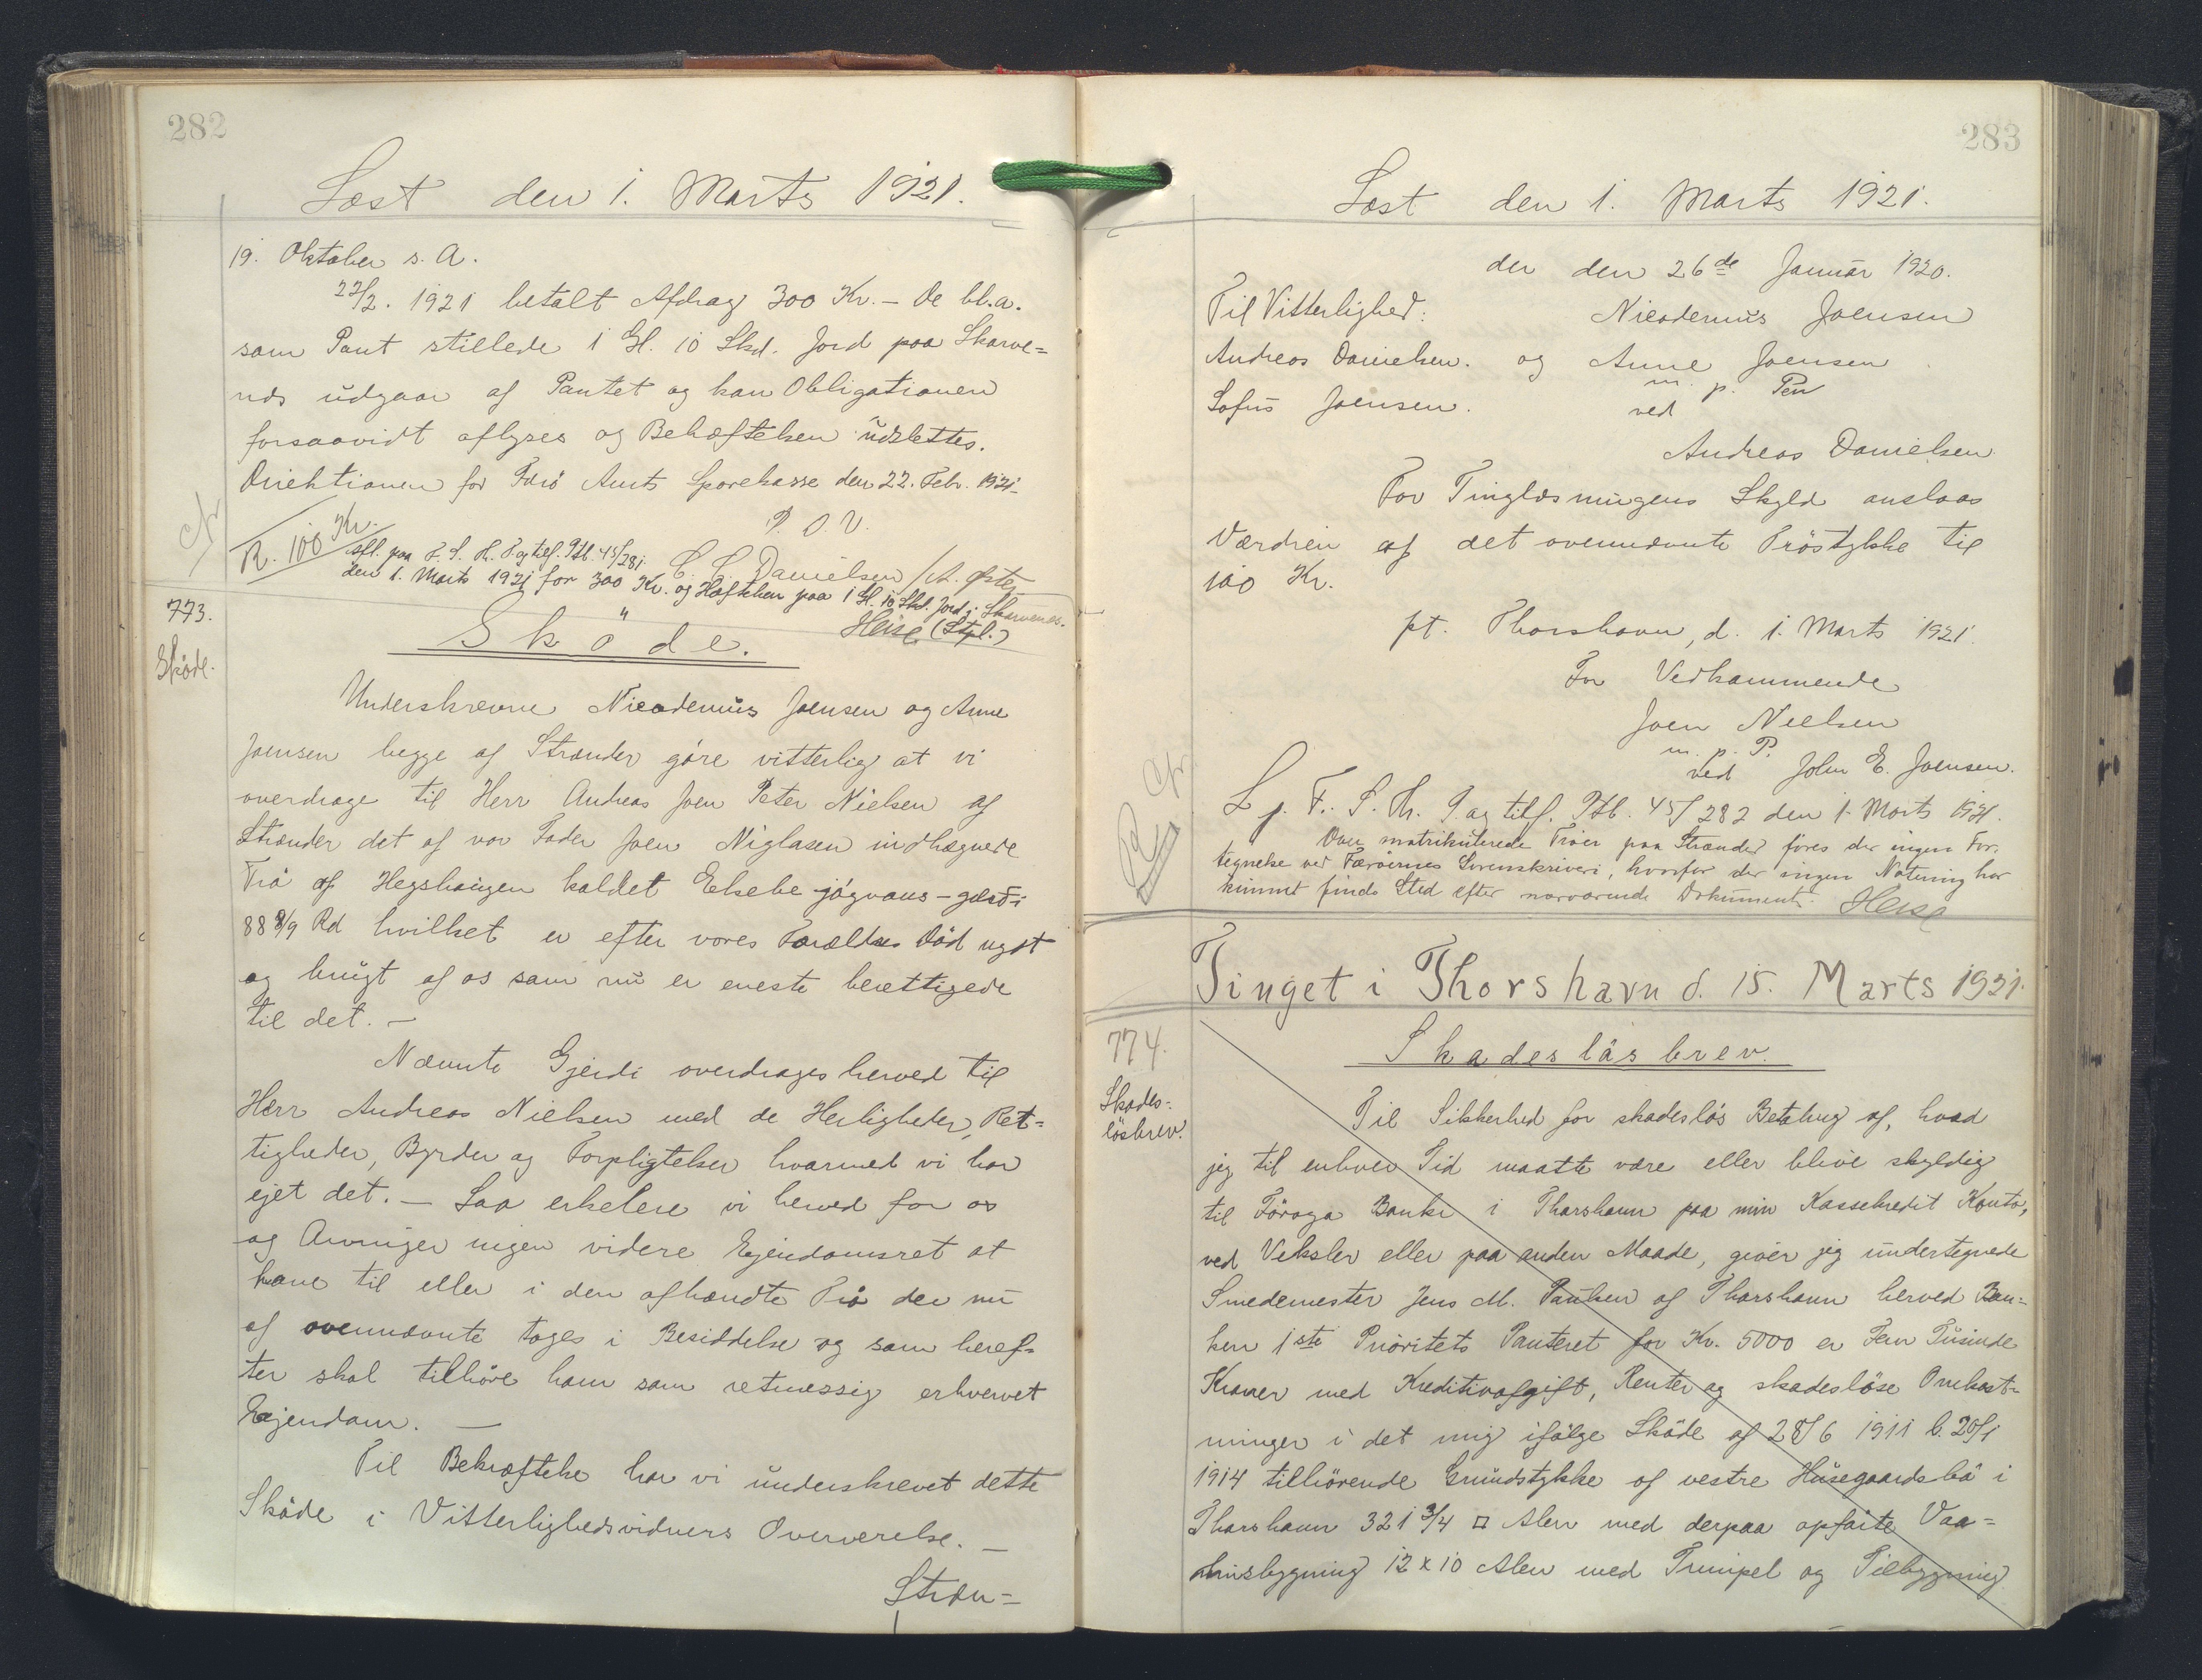 282
Læst den 1. Marts 1921.
19. Oktober s. A.
22/2. 1921 betalt Afdrag 300 Kr. – De bl.a.
som Pant stillede 1 Gl. 10 Skd. Jord paa Skarve=
næs udgaar af Pantet og kan Obligationen
forsaavidt aflyses og Behæftelsen udslettes.
Direktionen for Færö Amts Sparekasse den 22. Febr. 1921
P. O. V.
cfr
R. 100 Kr.
C. C. Danielsen / A.
afl. paa F. S. H. P og tilf. Ptb. 45/281.
den 1. Marts 1921 for 300 Kr. og Hæftelsen paa 1 Gl. 10 Skd. Jord i Skarvenes.
Heise (Stpl.)
773.
Sköde.
Sköde.
Underskrevne Nicodemus Joensen og Anne
Joensen begge af Strænder göre vitterlig at vi
overdrage til Herr Andreas Joen Peter Nielsen af
Strænder det af vor Fader Joen Niglasen indhægnede
Trö af Hegshaugen kaldet Elsebe jógvans – gærdi
88 8/9 Rd hvilket er efter vores Forældres Död nydt
og brugt af os som nu er eneste berettigede
til det. –
Nævnte Gjerdi overdrages herved til
Herr Andreas Nielsen med de Herligheder, Ret=
tigheder, Byrder og Forpligtelser hvormed vi har
ejet det. – Saa erkelere vi herved for os
og Arvinger ingen videre Ejendomsret at
have til eller i den afhændte Trö der nu
af ovennævnte tages i Besiddelse og som heref=
ter skal tilhöre ham som retmessig erhvervet
Eejendom. –
Til Bekræftelse har vi underskrevet dette
Sköde i Vitterlighedsvidners Overværelse. –
Stræn=
283
Læst den 1. Marts 1921.
der den 26de Januar 1920.
Til Vitterlighed: Nicodemus Joensen
Andreas Danielsen. og Anne Joensen
m. p. Pen
Sofus Joensen. ved
Andreas Danielsen
For Tinglæsningens Skyld anslaas
Værdien af det ovennævnte Tröstykke til
100 Kr.
pt. Thorshavn, d. 1. Marts 1921.
For Vedkommende
Joen Nielsen
m. p. P.
ved John E. Joensen.
cfr
R
L p. F. S. H. P. og tilf. Ptb. 45/282 den 1. Marts 1921.
Over matrikulerede Tröer paa Strænder föres der ingen For-
tegnelse ved Færöernes Sorenskriveri, hvorfor der ingen Notering har
kunnet finde Sted efter nærværende Dokument. Heise
Tinget i Thorshavn d. 15. Marts 1921.
774.
Skades=
lösbrev.
Skadeslösbrev.
Til Sikkerhed for skadeslös Betaling af, hvad
jeg til enhver Tid maatte være eller blive skyldig
til Föroya Banki i Thorshavn paa min Kassekredit Konto,
ved Veksler eller paa anden Maade, giver jeg undertegnede
Smedemester Jens M. Paulsen af Thorshavn herved Ban=
ken 1ste Prioritets Panteret for Kr. 5000 er Fem Tusinde
Kroner med Kreditivafgift, Renter og skadeslöse Omkost=
ninger i det mig ifölge Sköde af 28/6 1911 l. 20/1
1914 tilhörende Grundstykke af vestre Husegaardsbö i
Thorshavn 321 3/4 □ Alen med derpaa opförte Vaa=
ninsbygning 12 x 10 Alen med Trimpel og Tilbygning